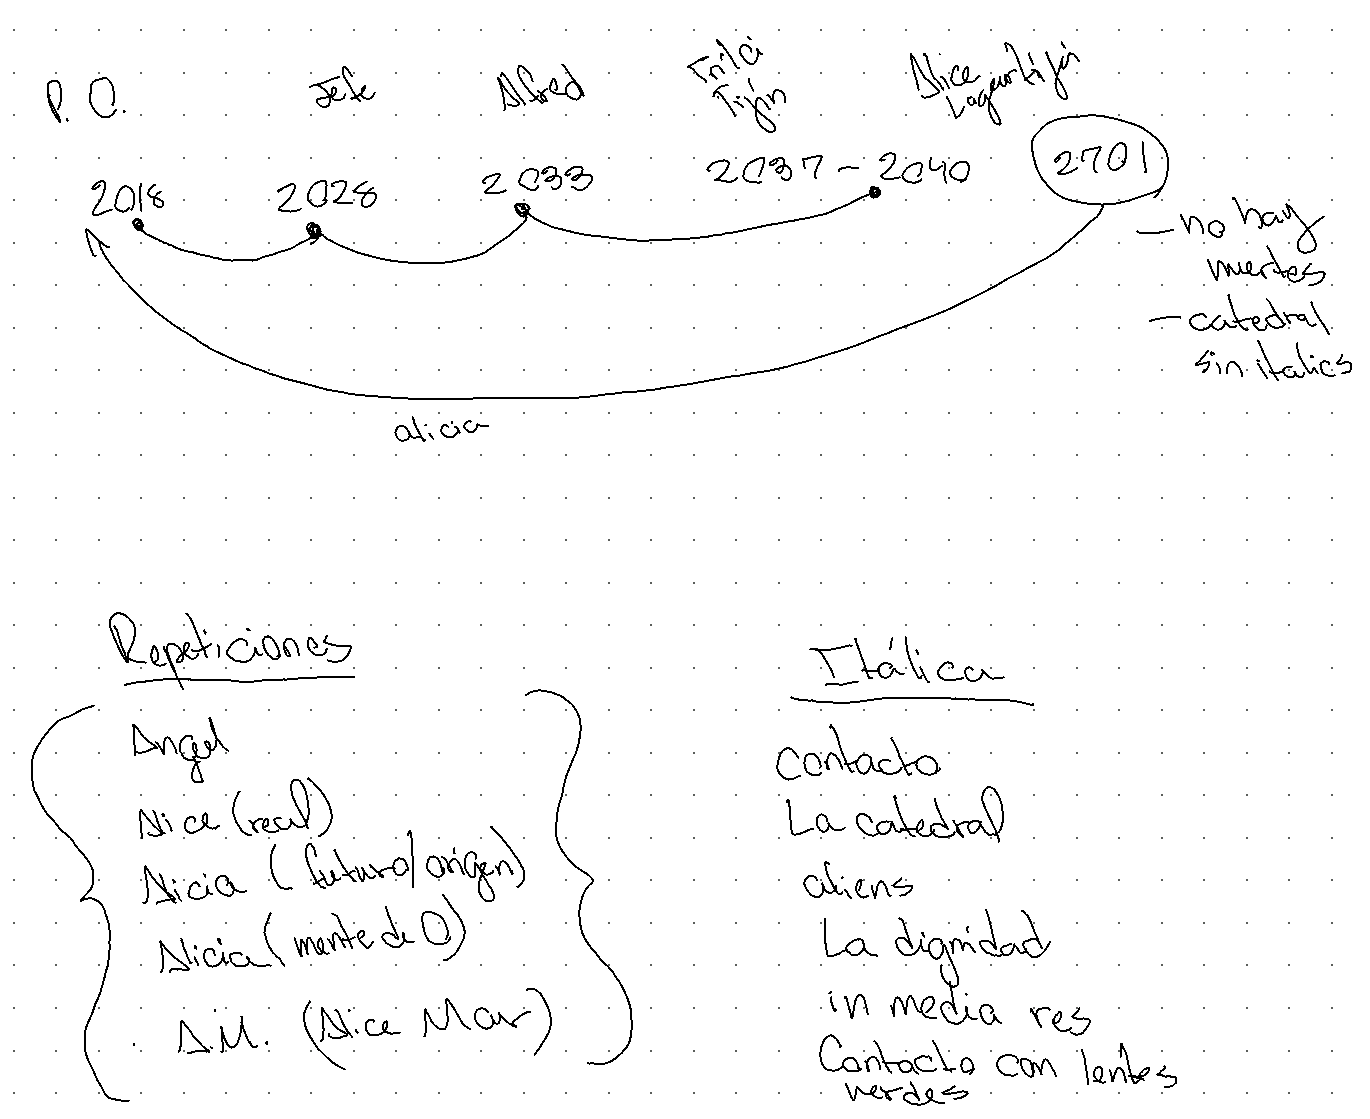 P. O.
Jefe
Alfred
Tijín
Alice
Lagartijín
2018
2028
2033
2037 - 2040
2701
- no hay
muertes
- catedral
sin italics
alicia
Repeticiones
Angel
Alice (real)
Alicia (futuro/origen)
Alicia (mente de O)
A.M. (Alice Mar)
Itálica
contacto
La catedral
aliens
La dignidad
in media res
Contacto con lentes
verdes